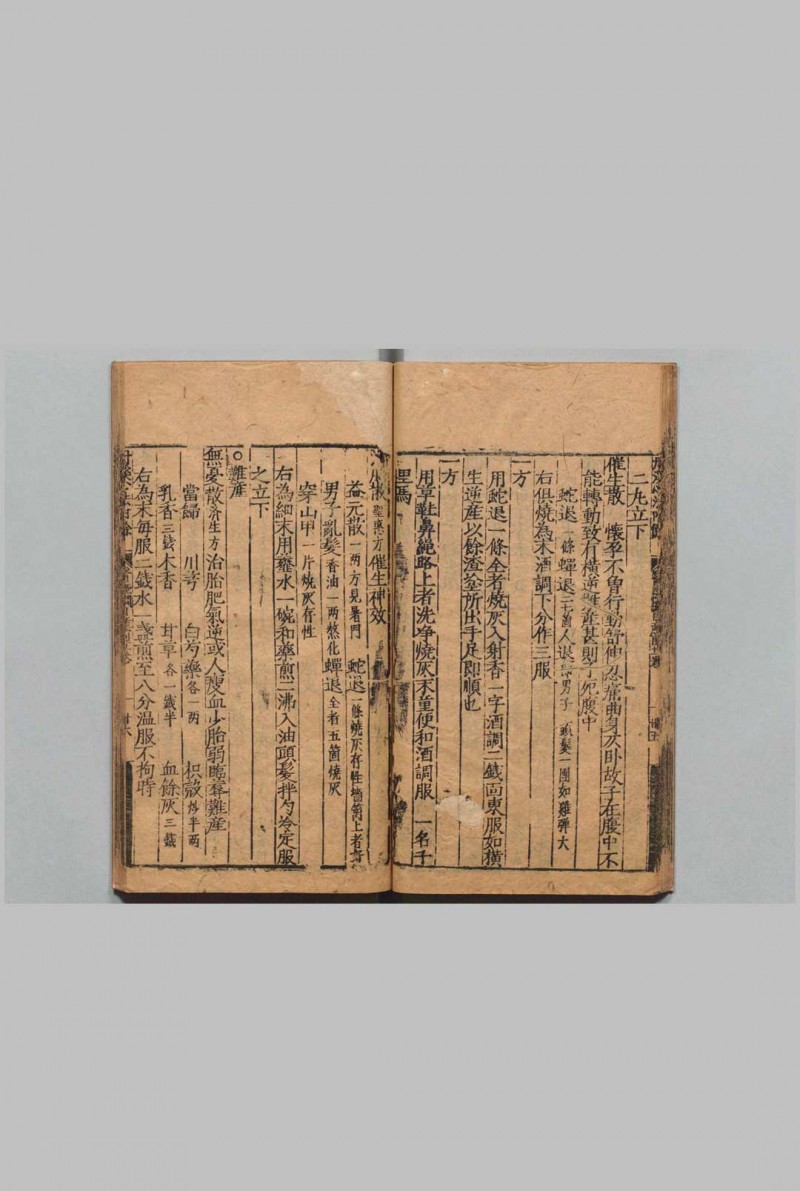 二九立下
催生散 懷孕不曾行動舒伸忍痛曲身灰卧故子在腹中不
能轉動致有橫逆難產甚則子死腹中
蛇退一條蟬退二七箇人退男子頭髮一團如雞彈大
右俱燒為末酒調下分作三服
一方
用蛇退一條全者燒灰入射香一字酒調二錢面東服如橫
生逆產以餘渣塗所出手足即順也
一方
用草鞋鼻繩路上者洗净燒灰末童便和酒調服 一名千
里馬
散聖惠方催生神效
益元散一两方見暑門 蛇退一條燒灰存性墻茼上者
男子亂髮香油一两熬化蟬退全者五箇燒灰
穿山甲一片燒灰存性
右為細末用虀水一碗和藥煎二沸入油頭髮拌勻冷定服
之立下
○難產
無憂散濟生方治胎肥氣逆或人瘦血少胎弱臨蓐難產
當歸 川芎 白芍藥各一两 枳殼炒半两
乳香三錢木香 甘草各一錢半 血餘灰三錢
右為末每服二錢水一盞煎至八分温服不拘時